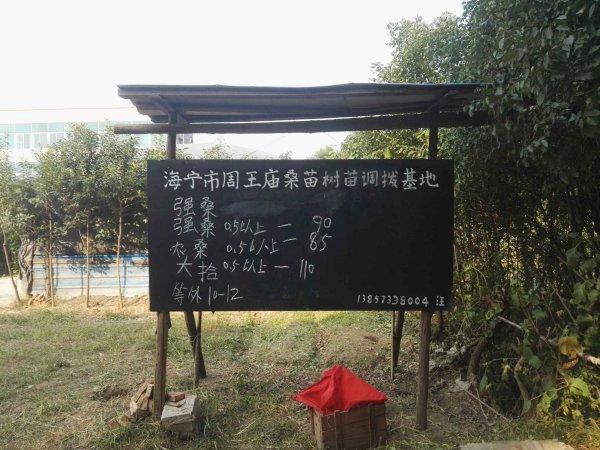 海宁市周王庙桑苗树苗调拨基地
强桑
强桑 0.5以上 — 90
农桑 0.5以上 — 85
大拾 0.5以上 — 110
等外 10-12
13857338004 汪